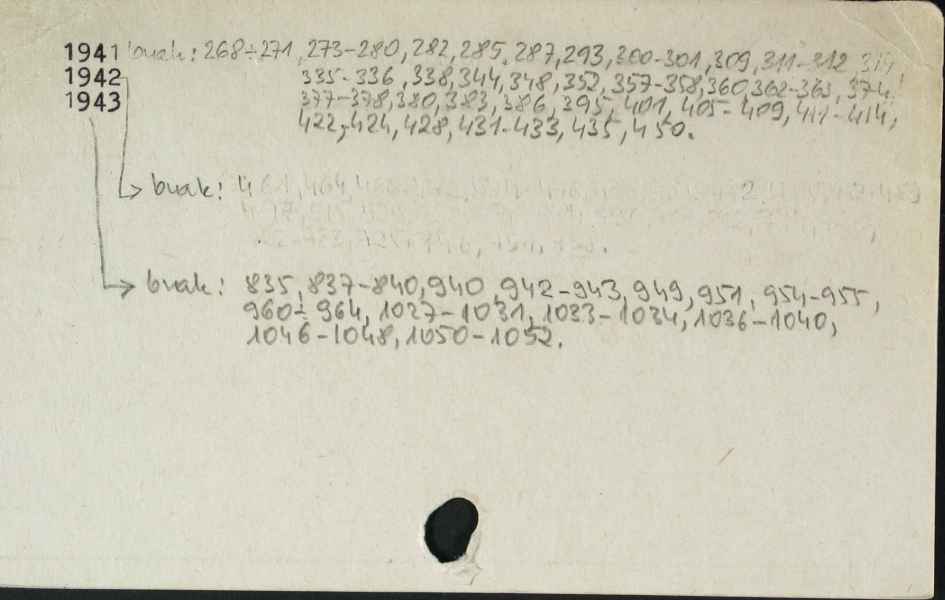 1941 brak: 268-271, 273-280, 282, 285, 287, 293, 300-301, 309, 311-312
1942 335-336, 338, 344, 348, 352, 357-358, 360, 362-363, 374,
1943 377-378, 380, 383, 386, 395, 401, 405-409, 411-414,
422, 424, 428, 431-433, 435, 450.
brak: 4
brak: 835, 837-840, 940, 942-943, 949, 951, 954-955,
960-964, 1027-1031, 1033-1034, 1036-1040,
1046-1048, 1050-1052.